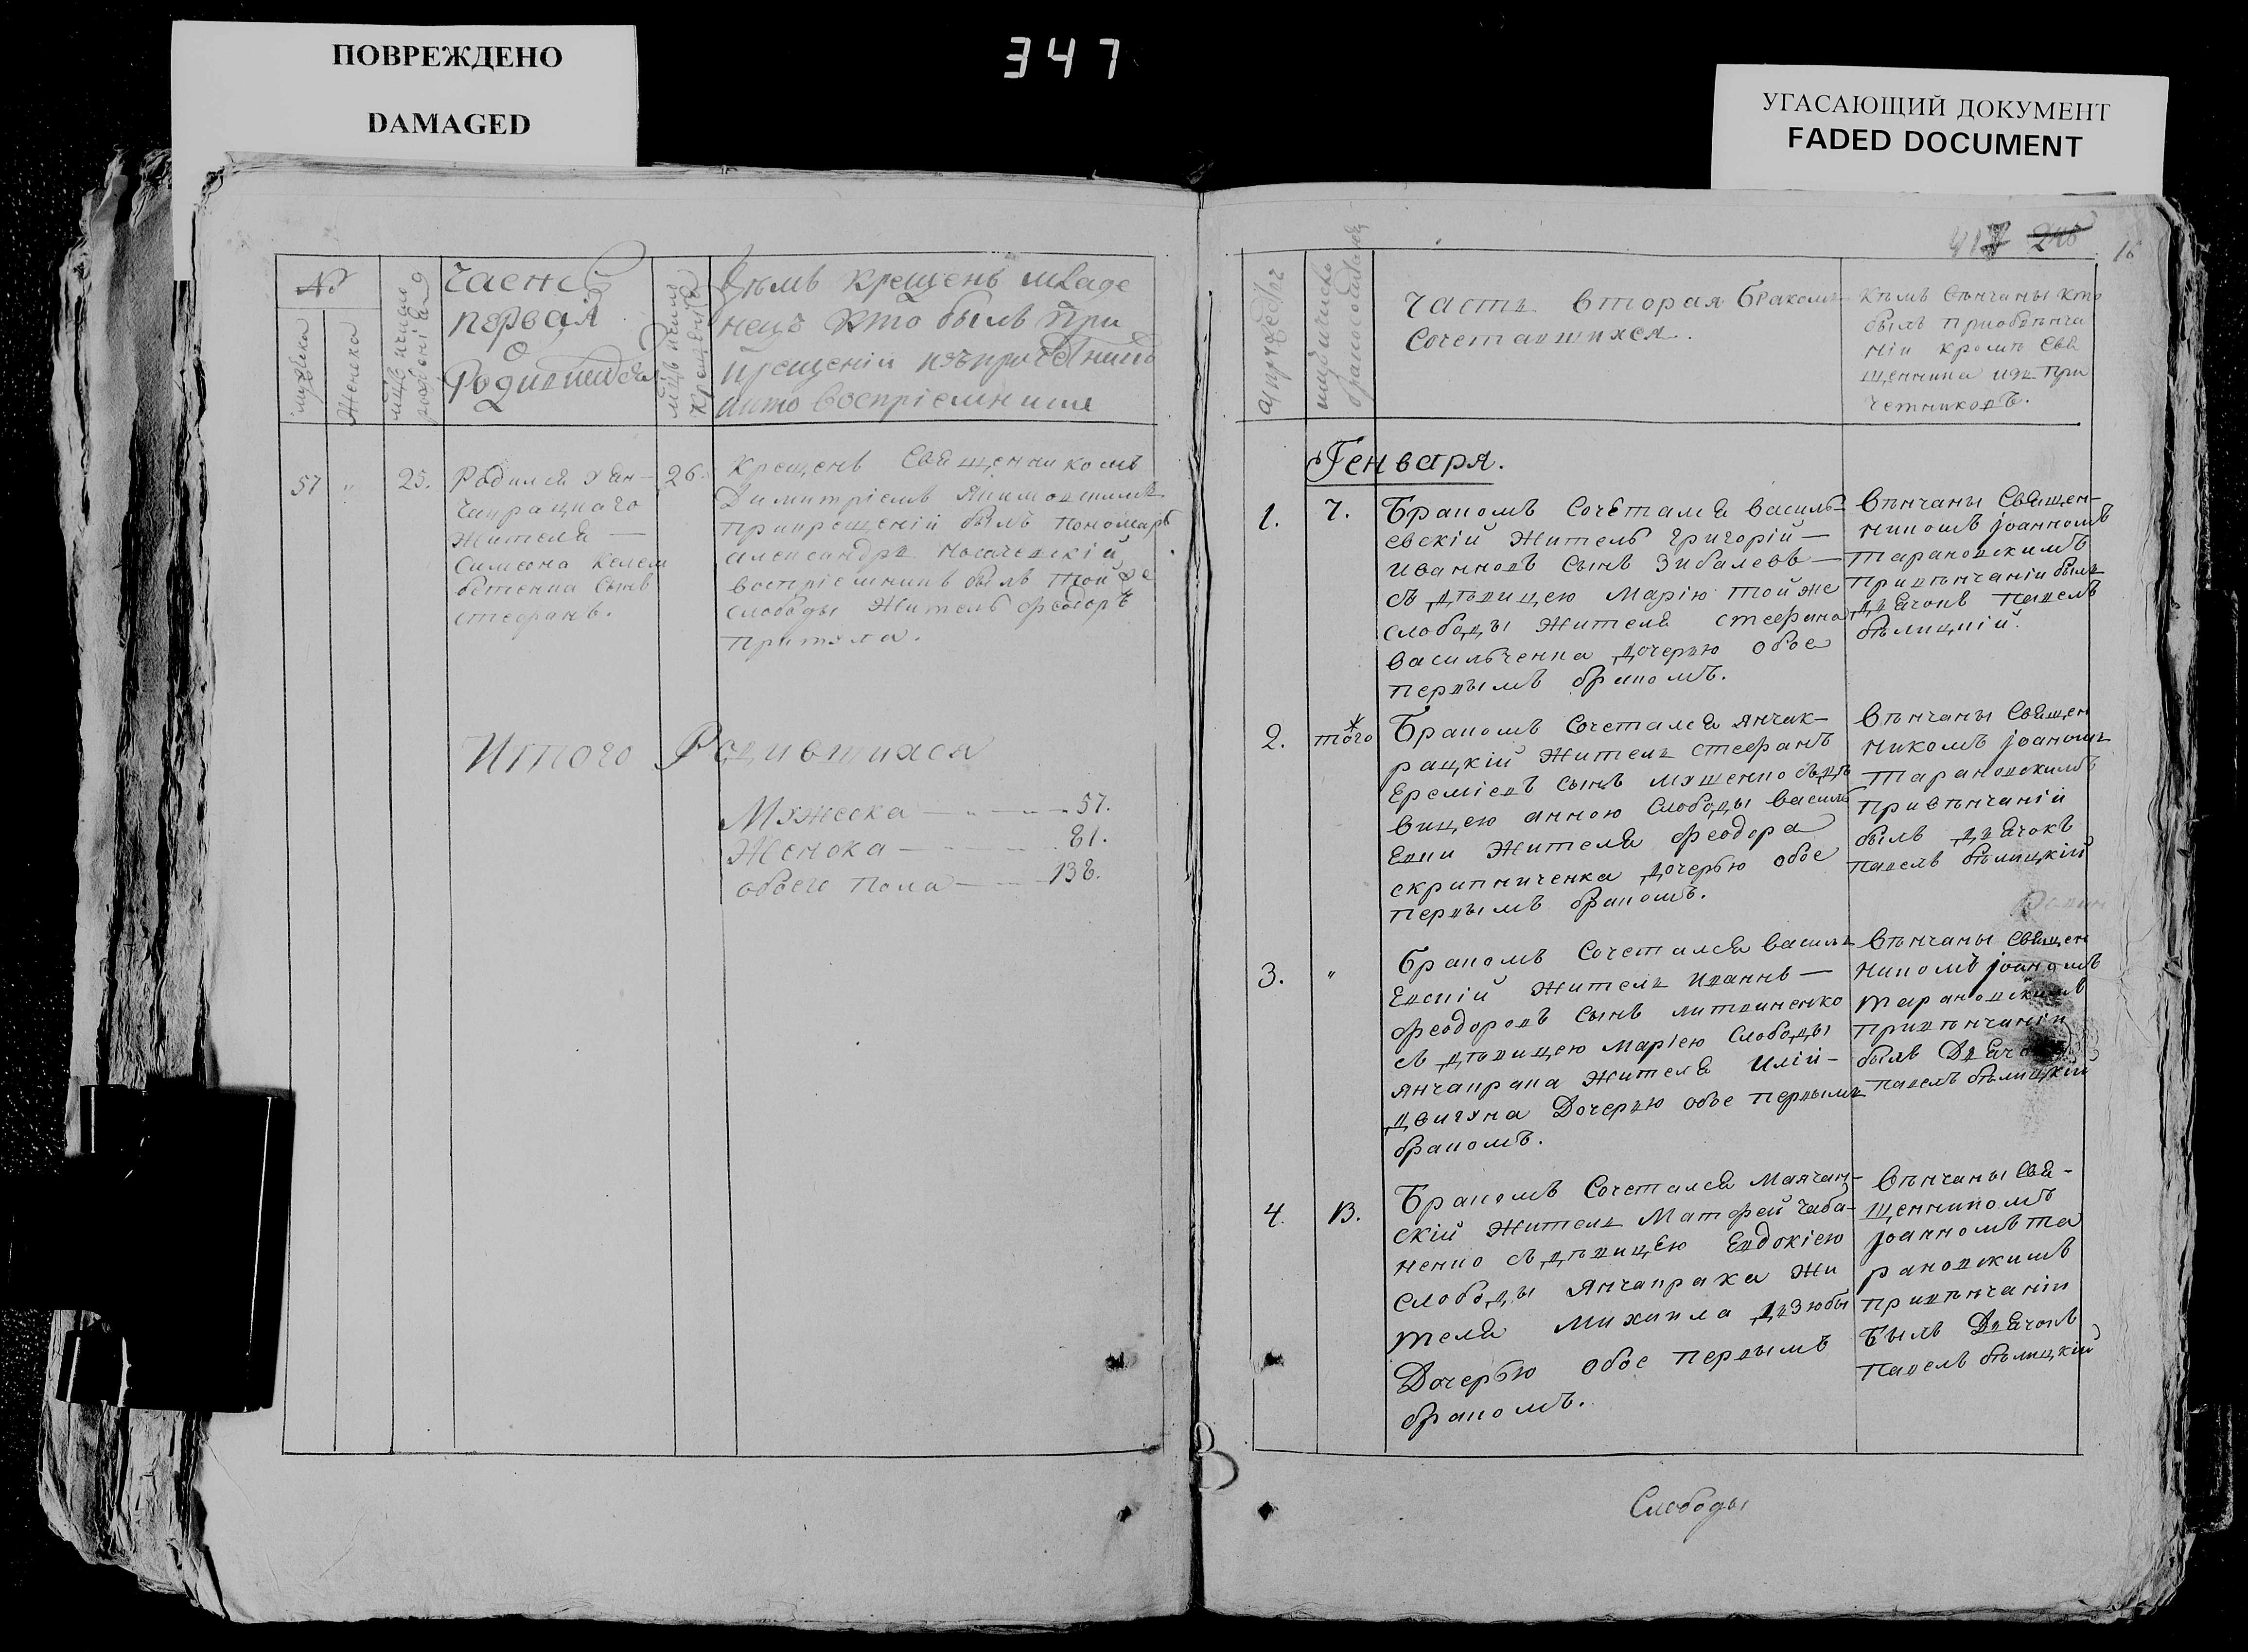 ПОВРЕЖДЕНО
DAMAGED
347
УГАСАЮЩИЙ ДОКУМЕНТ
FADED DOCUMENT
№
мужеска
женска
часть
первая
о
Родившихся
Кѣмъ крещенъ младе
нецъ кто былъ при
крещеніи изъ причетниковъ
и кто воспріемники
57
"
25.
Родился Янчакрацкаго
жителя —
Симеона
сынъ
Стефанъ.
26.
Крещенъ Священникомъ
Димитріемъ
при крещеніи былъ пономарь
Александръ
воспріемникъ былъ той же
слободы житель Феодоръ
Притула.
Итого Родившихся
Мужеска — " — 57.
Женска — 81.
обоего пола — 138.
417 246
16
часть вторая бракомъ
сочетавшихся.
Кѣмъ вѣнчаны кто
былъ при обвѣнча
ніи кромѣ Свя
щенника изъ при
четниковъ.
Генваря.
1.
7.
Бракомъ Сочетался Василь-
евскій житель Григорій —
Ивановъ Сынъ Зибалевъ —
съ дѣвицею Марію той же
слободы жителя Стефана
Васильченка дочерью обое
первымъ бракомъ.
Вѣнчаны Священ-
никомъ Іоанномъ
Тарановскимъ
при вѣнчаніи былъ
дьячокъ Павелъ
Бѣлицкій.
2.
того
Бракомъ Сочетался Янчак-
рацкій житель Стефанъ
Еремѣевъ сынъ съ дѣ
вицею Анною Слободы Василь
евки жителя Феодора
Скрипниченка дочерью обое
первымъ бракомъ.
Вѣнчаны Священ
никомъ Іоаномъ
Тарановскимъ
при вѣнчаніи
былъ дьячокъ
Павелъ Бѣлицкій
3.
"
Бракомъ Сочетался Василь
евскій житель Иваннъ —
Феодоровъ Сынъ Литвиненко
съ дѣвицею Маріею Слободы
Янчакрака жителя Илій-
Двигуна Дочерью обое первымъ
бракомъ.
Вѣнчаны Священ
никомъ Іоаномъ
Тарановскимъ
при вѣнчаніи
былъ Дьячокъ
Павелъ Бѣлицкій
4.
13.
Бракомъ Сочетался Маячан-
скій житель Матфей Чаба-
ненко съ дѣвицею Евдокіею
Слободы Янчакрака жи
теля Михаила Дзюбы
Дочерью обое первымъ
бракомъ.
Вѣнчаны Свя-
щенникомъ
Іоанномъ Та
рановскимъ
при вѣнчаніи
Былъ Дьячокъ
Павелъ Бѣлицкій
Слободы